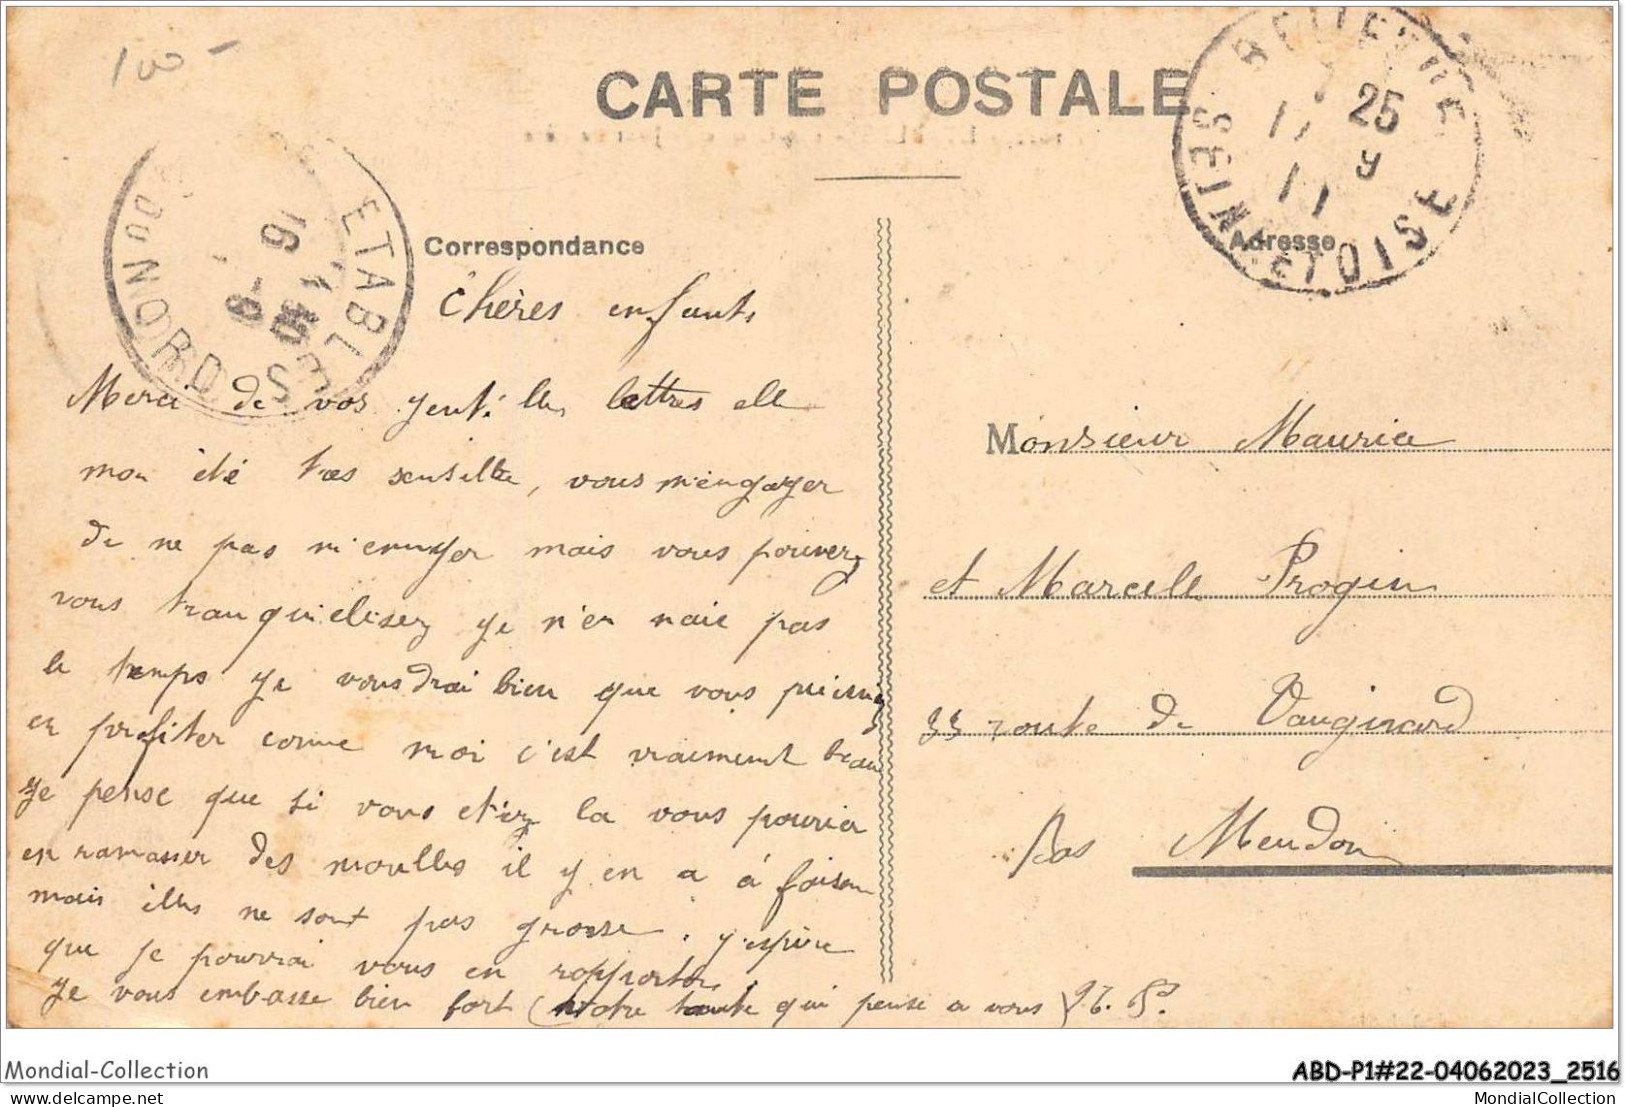 100-
CARTE POSTALE
BELLEVUE
25
9
11
SEINE ET OISE
ETABLES
16
COTES DU NORD
Correspondance
Adresse
Chères enfants
Merci de vos yentilles lettres elle
mon été tres sensible, vous m'engager
de ne pas m'ennuyer mais vous pouvez
vous tranquiélisez ye n'en naie pas
le temps ye vousdrai bien que vous puissiez
en profiter comme moi c'est vraiement beau
ye pense que si vous etiez la vous pourier
en ramasser des moulles il y en a à foison
mais illes ne sont pas grosse. y'espère
que je pourrai vous en rapporter.
ye vous embasse bien fort (Notre tante qui pense a vous)
Monsieur Maurice
et Marcelle Progin
33 route de Vaugirard
Bas Meudon
Mondial-Collection
ABD-P1#22-04062023_2516
delcampe.net
MondialCollection